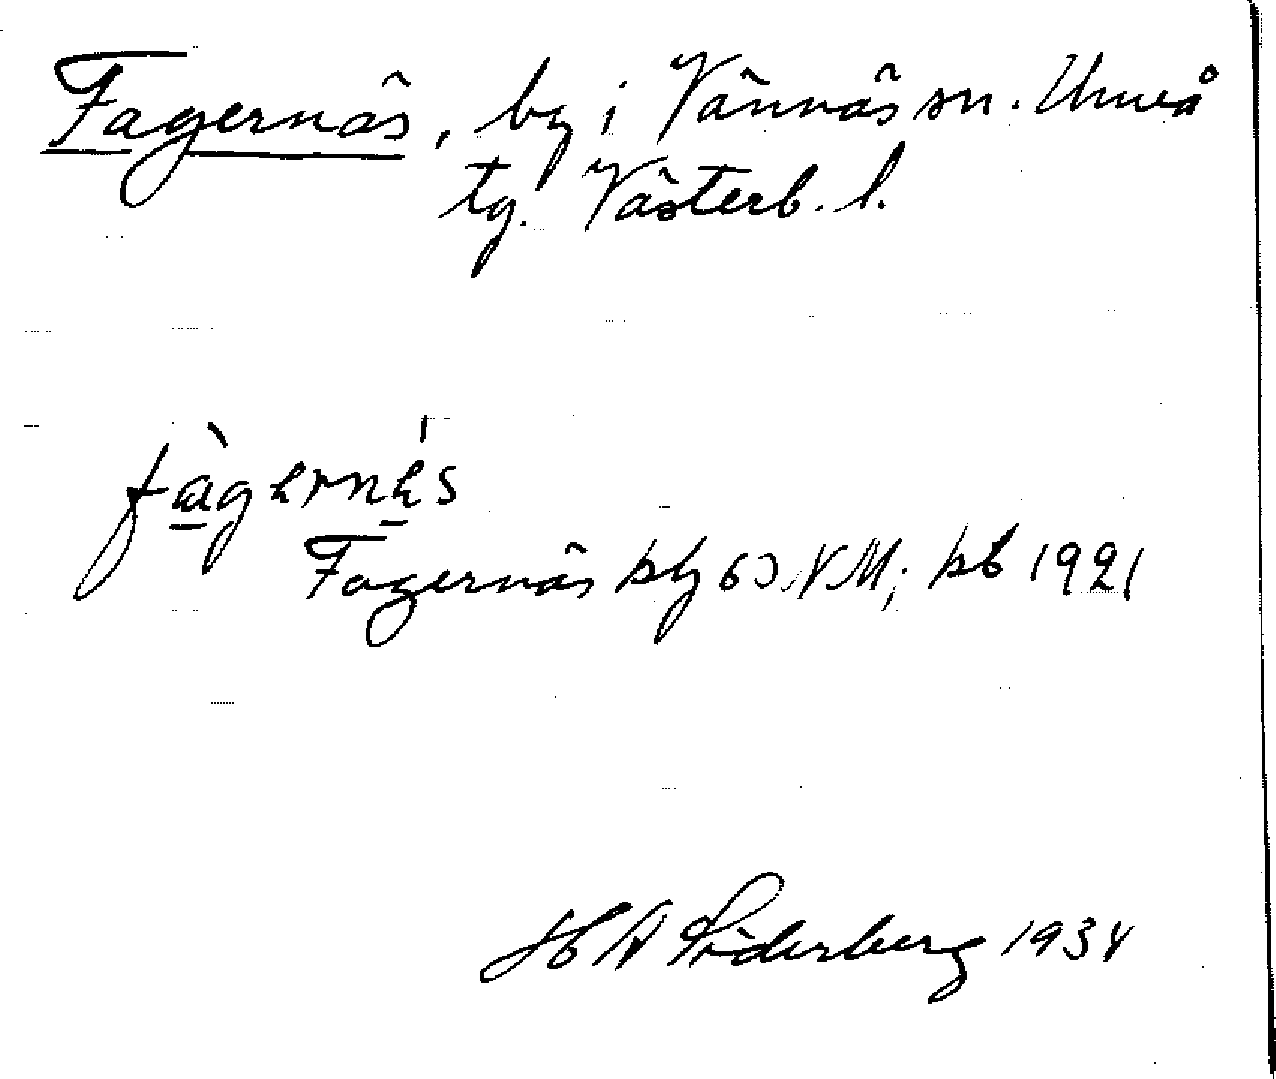 Fagernäs, by i Vännäs sn. Umeå
tg. Västerb. l.
fàgernés
Fagernäs kbl 63 NV; kb 1921
H A Söderberg 1934